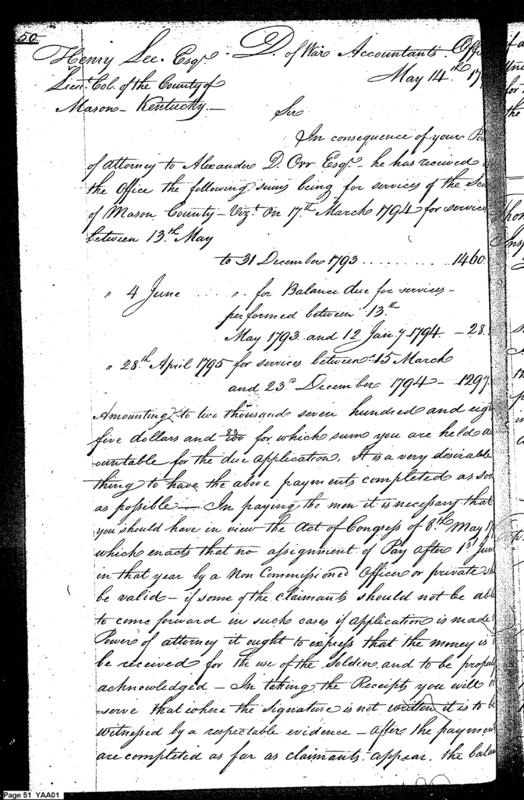 50
Henry Lee. Esqr. D. of War Accountants Offi
Lieut. Col. of the County of May 14th 17
Mason – Kentucky. –
Sir
In consequence of your Po
of Attorney to Alexander D. Orr Esqr. he has received
the Office the following sums being for services of the
of Mason County – Vizt. On 17th March 1794 for service
between 13th May
to 31 December 1793 .......... 1460
" 4 June .... ". for Balance due for services –
performed between 13th
May 1793 and 12 Jany. 1794. – 28.
" 28th April 1795 for services between 15 March
and 23d December 1794 – 1297.
Amounting to two thousand seven hundred and eig
five dollars and 83/100 for which sum you are held a
countable for the due application. It is a very desirable
thing to have the above payments completed as soo
as possible – In paying the men it is necessary that
you should have in view the Act of Congress of 8th May 1
which enacts that no assignment of Pay after 1st June
in that year by a Non Commissioned Officer or private sh
be valid – if some of the claimants should not be abl
to come forward in such cases if application is made
Power of attorney it ought to express that the money is
be received for the use of the Soldier and to be prope
acknowledged – In taking the Receipts you will o
serve that where the signature is not written it is to be
witnessed by a respectable evidence – after the paymen
are completed as far as claimants appear, the balan
Page 51 YAA01